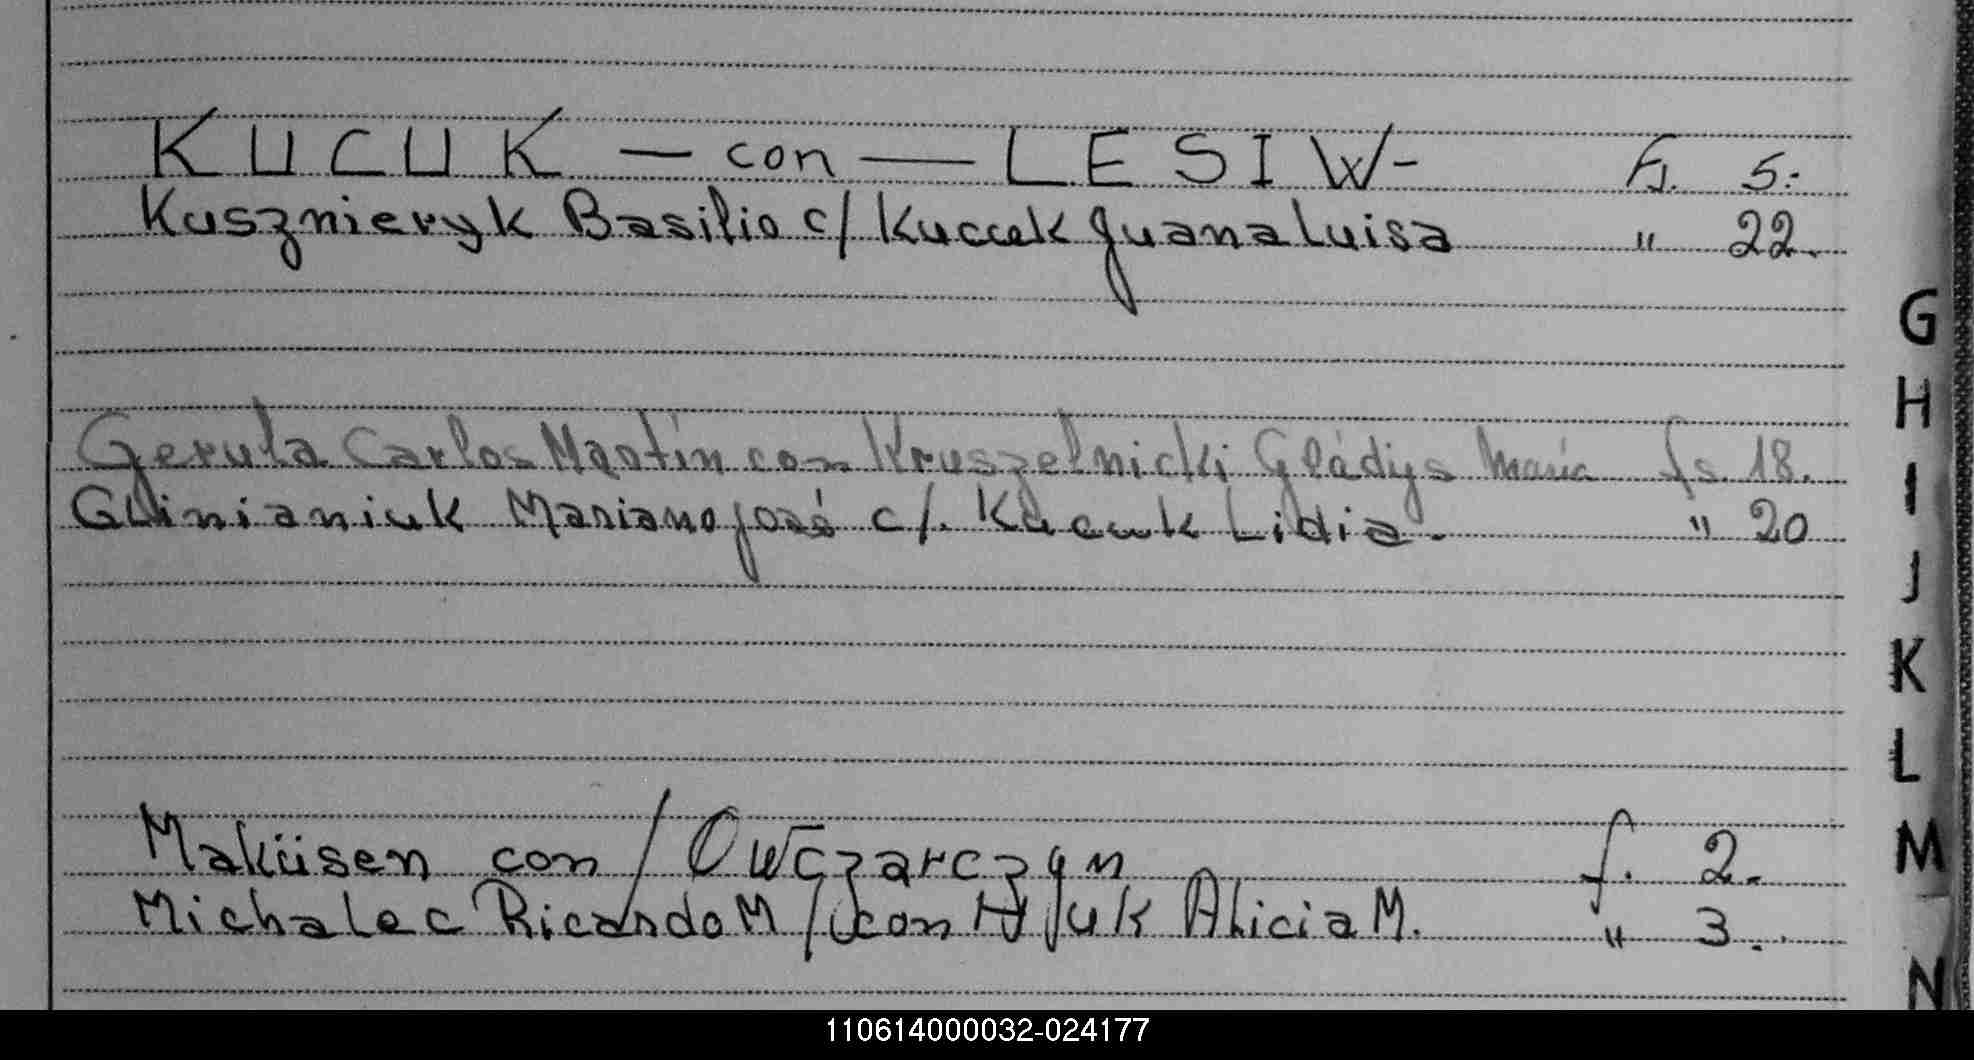 KUCUK — con — LESIW - Fj. 5.-
Kusznieryk Basilio c/ Kucuk Juana Luisa " 22.
Gerula Carlos Martín con Kruszelnicki Gládys María fs. 18.
Glinianiuk Mariano José c/. Kucuk Lidia. " 20
Maküsen con / Owczarczyn f. 2.-
Michalec Ricardo M / con Alicia M. " 3.
G
H
I
J
K
L
M
N
110614000032-024177